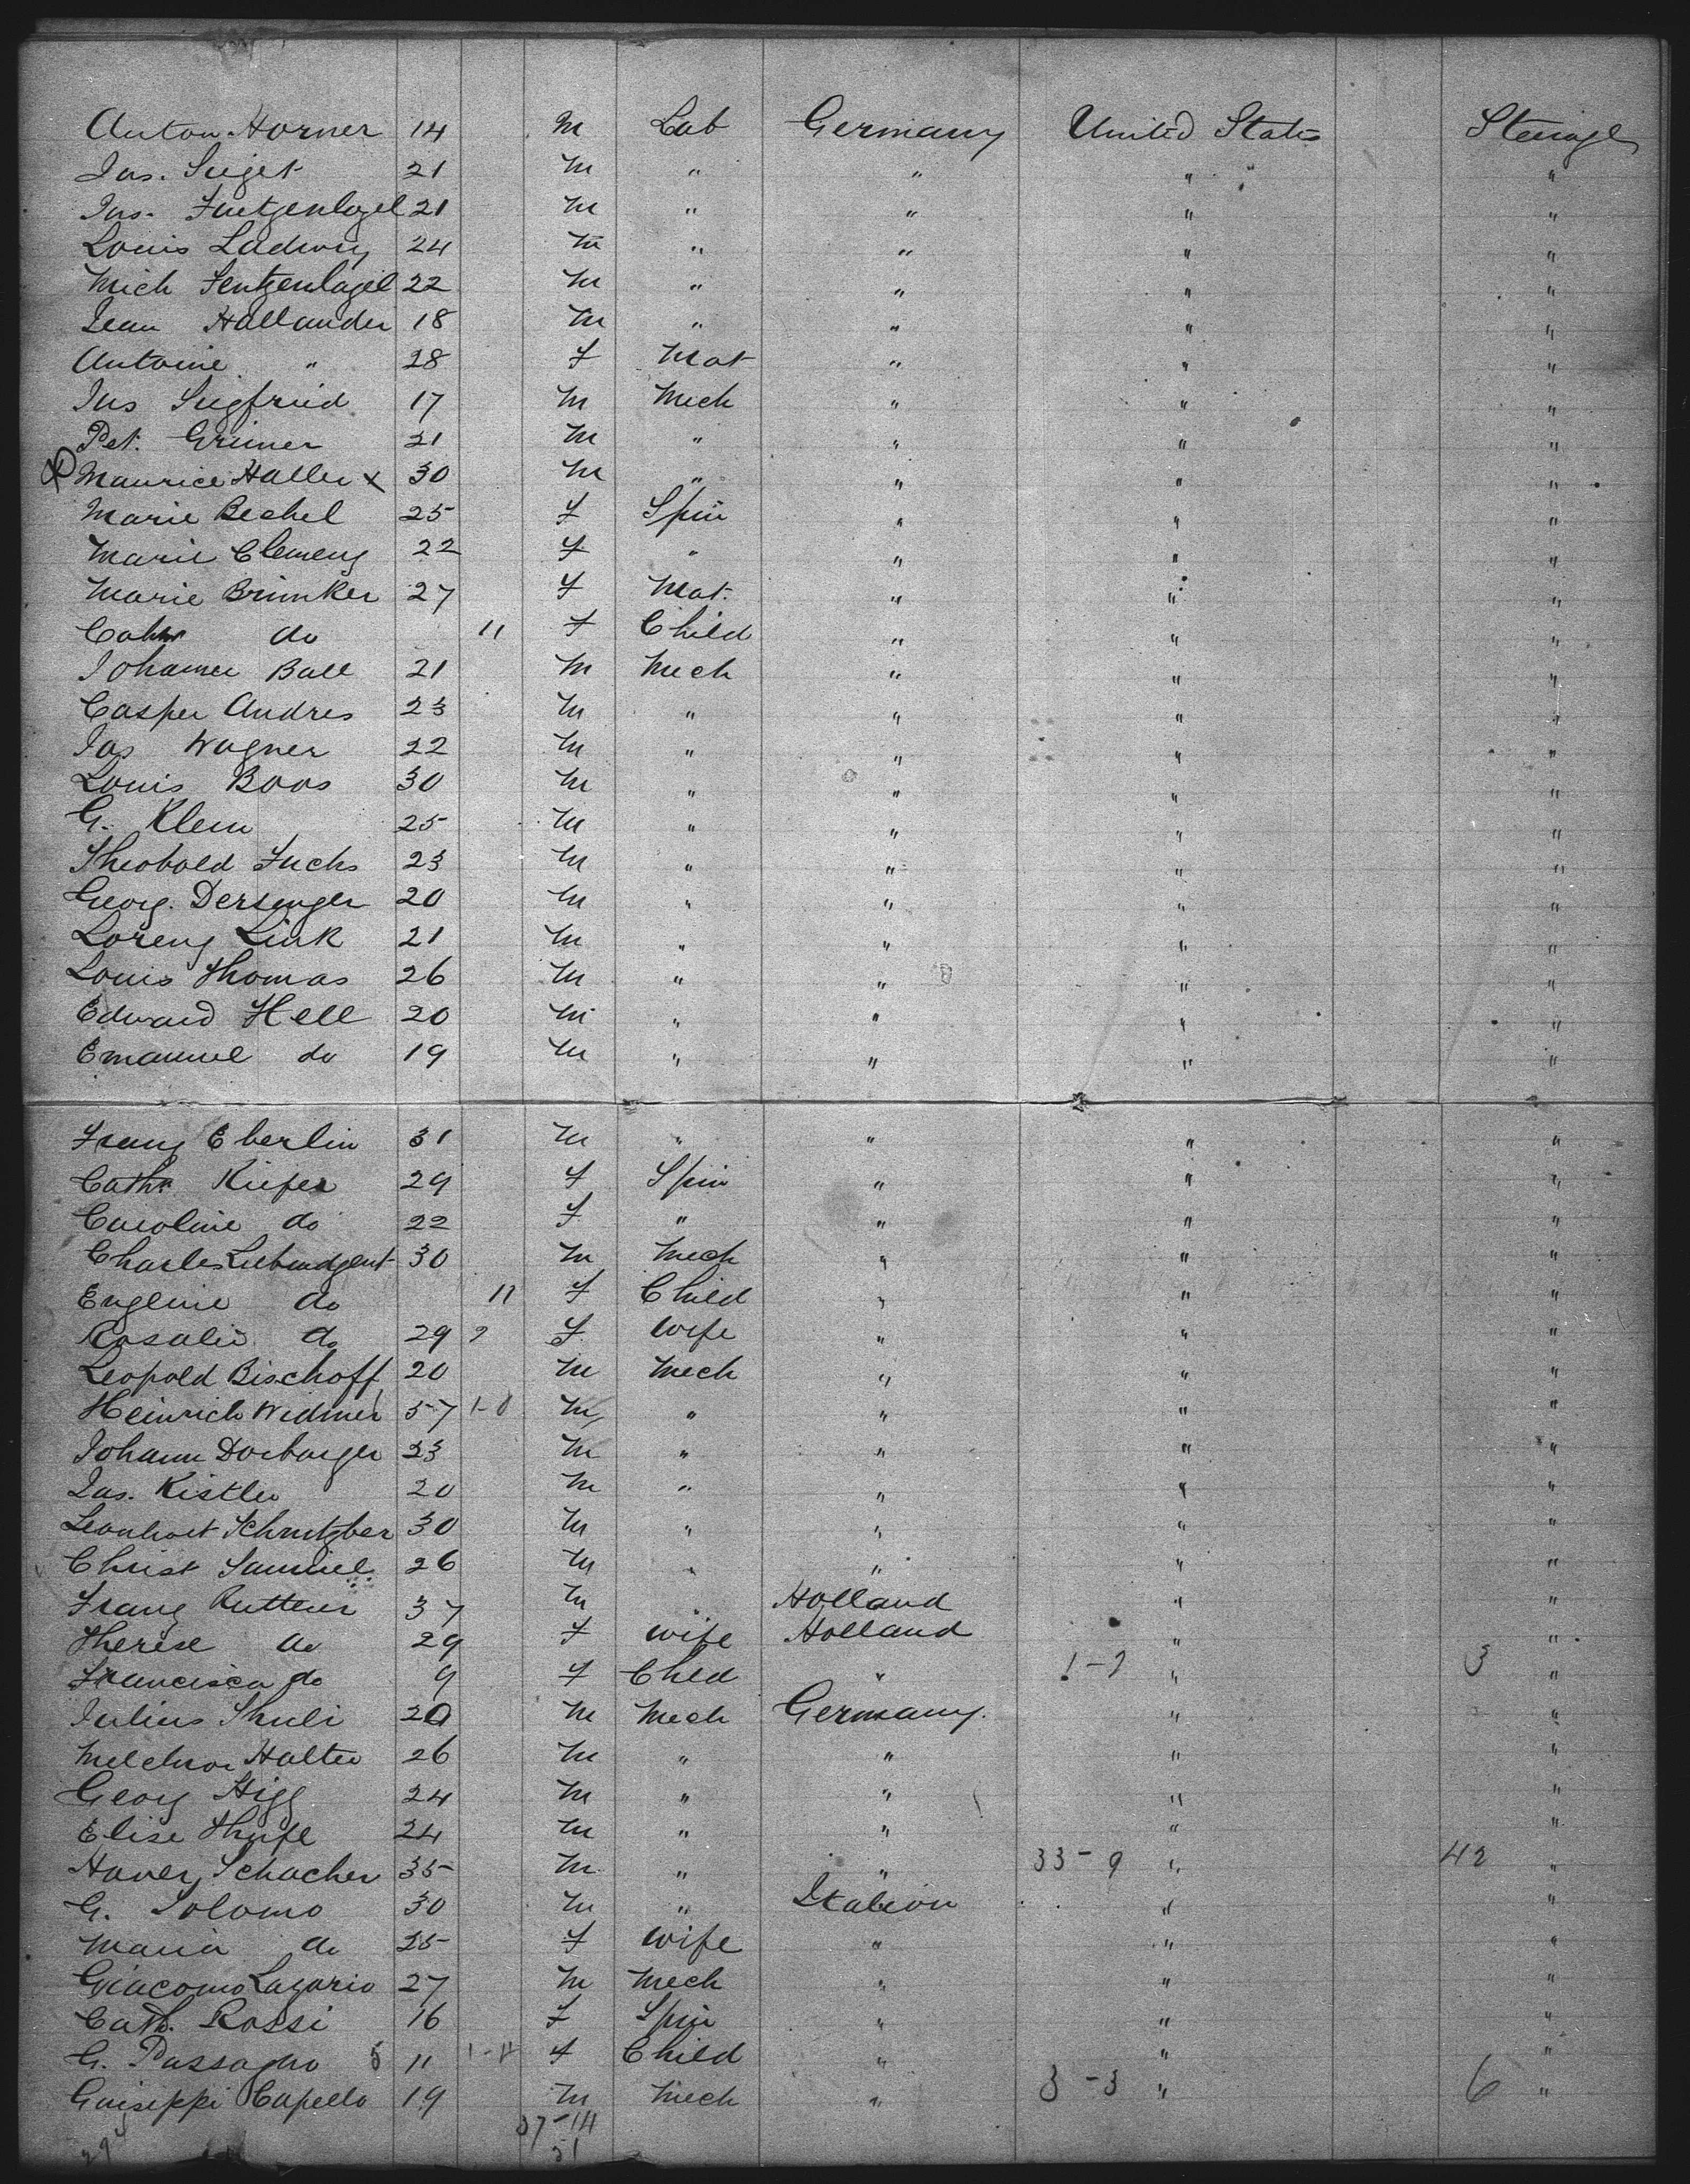 Anton Horner 14 M Lab Germany United States Steerage
Jas. Siget 21 M " " " "
Jas. Fuetzenlogel 21 M " " " "
Louis Ludwig 24 M " " " "
Mich Fentzenlagel 22 M " " " "
Jean Hallander 18 M " " " "
Antoine " 28 F Mat " " "
Jus Siegfried 17 M Mech " " "
Pet. Grimer 21 M " " " "
Maurice Haller x 30 M " " " "
Marie Bechel 25 F Spin " " "
Marie Clemenz 22 F " " " "
Marie Brinker 27 F Mat. " " "
do 11 F Child " " "
Johannes Ball 21 M Mech " " "
Casper Andres 23 M " " " "
Jas Wagner 22 M " " " "
Louis Boos 30 M " " " "
G. Klein 25 M " " " "
Theobold Fuchs 23 M " " " "
Georg. Dersenger 20 M " " " "
Lorenz Link 21 M " " " "
Louis Thomas 26 M " " " "
Edward Hell 20 M " " " "
Emanuel do 19 M " " " "
Franz Eberlin 31 M " " " "
Cathr Kiefer 29 F Spin " " "
Caroline do 22 F " " " "
Charles 30 M Mech " " "
Englenie do 11 F Child " " "
Rosalie do 29 2 F Wife " " "
Leopold Bischoff 20 M Mech " " "
Heinrich Widmer 57 1-0 M " " " "
Johann Dorburger 23 M " " " "
Jas. Kistler 20 M " " " "
Leonhart Schnitzber 30 M " " " "
Christ Samuel 26 M " " " "
Franz Ruttener 37 M Holland " "
Therese do 29 F Wife Holland " "
Francisca do 9 F Child " 1-2 " 3 "
Julius Thuli 20 M Mech Germany. " "
Melchior Halter 26 M " " " "
Georg Higg 24 M " " " "
Elise Thufe 24 M " " " "
Haver Schacher 35 M " " 33-9 " 42 "
G. Solomo 30 M " Italien " "
Maria do 25 F Wife " " "
Giacomo Lazario 27 M Mech " " "
Cath. Rossi 16 F Spin " " "
G. Passagno 5 11 F Child " " "
Guiseppi Capello 19 M Mech " 3-3 " 6 "
37-14
294 51